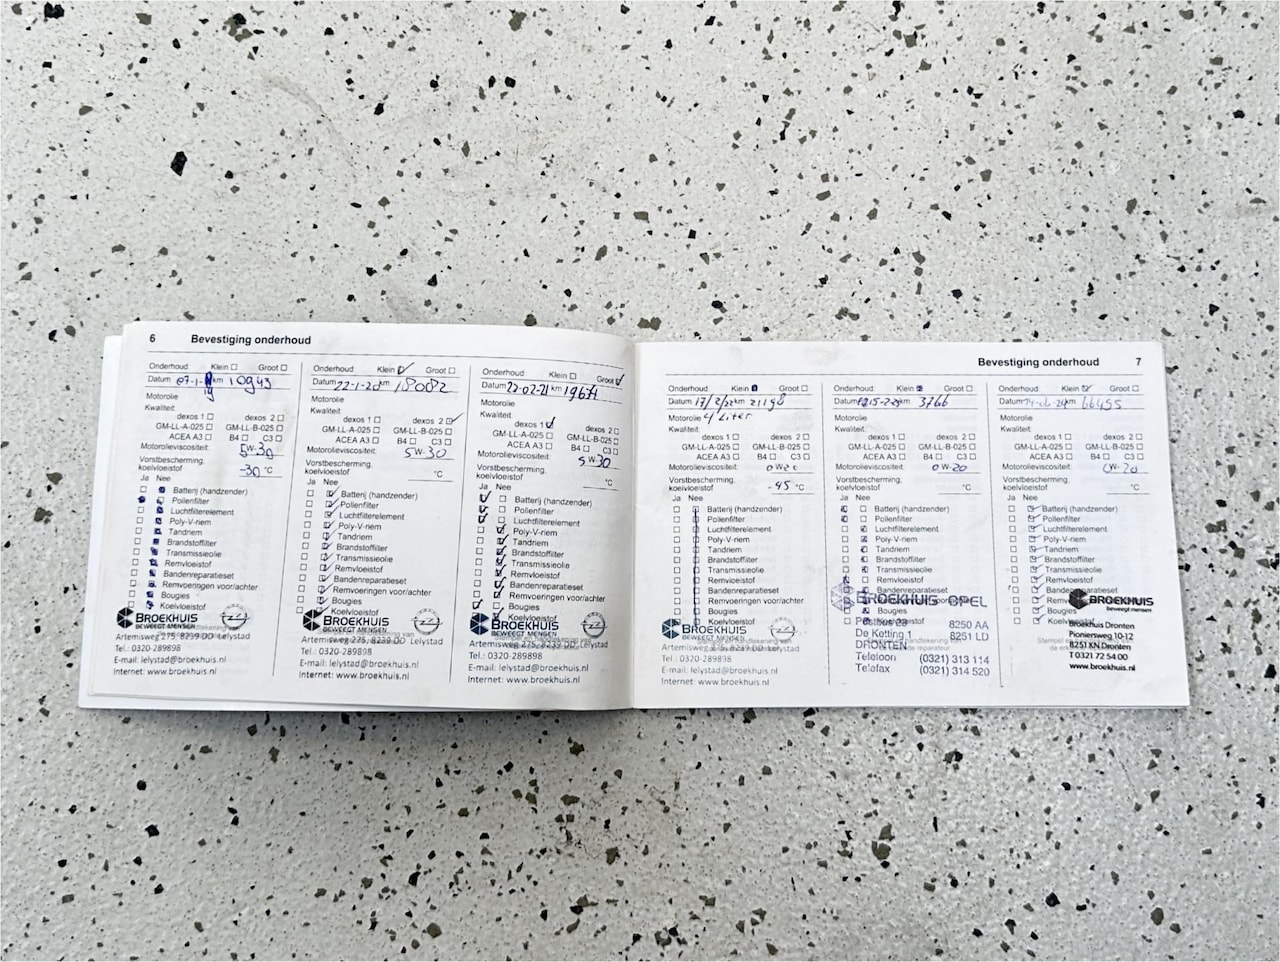 6 Bevestiging onderhoud
Onderhoud: Klein Groot
Datum 07-1-19 km 10943
Motorolie
Kwaliteit:
dexos 1 dexos 2
GM-LL-A-025 GM-LL-B-025
ACEA A3 B4 C3
Motorolieviscositeit: 5W-30
Vorstbescherming.
koelvloeistof -30 °C
Ja Nee
Batterij (handzender)
Pollenfilter
Luchtfilterelement
Poly-V-riem
Tandriem
Brandstoffilter
Transmissieolie
Remvloeistof
Bandenreparatieset
Remvoeringen voor/achter
Bougies
Koelvloeistof
BROEKHUIS
BEWEEGT MENSEN
Artemisweg 275, 8239 DD Lelystad
Tel.: 0320-289898
E-mail: lelystad@broekhuis.nl
Internet: www.broekhuis.nl
Onderhoud: Klein Groot
Datum 22-1-20 km 18082
Motorolie
Kwaliteit:
dexos 1 dexos 2
GM-LL-A-025 GM-LL-B-025
ACEA A3 B4 C3
Motorolieviscositeit: 5W-30
Vorstbescherming.
koelvloeistof °C
Ja Nee
Batterij (handzender)
Pollenfilter
Luchtfilterelement
Poly-V-riem
Tandriem
Brandstoffilter
Transmissieolie
Remvloeistof
Bandenreparatieset
Remvoeringen voor/achter
Bougies
Koelvloeistof
BROEKHUIS
BEWEEGT MENSEN
Artemisweg 275, 8239 DD Lelystad
Tel.: 0320-289898
E-mail: lelystad@broekhuis.nl
Internet: www.broekhuis.nl
Onderhoud: Klein Groot
Datum 22-02-21 km 19671
Motorolie
Kwaliteit:
dexos 1 dexos 2
GM-LL-A-025 GM-LL-B-025
ACEA A3 B4 C3
Motorolieviscositeit: 5W-30
Vorstbescherming.
koelvloeistof °C
Ja Nee
Batterij (handzender)
Pollenfilter
Luchtfilterelement
Poly-V-riem
Tandriem
Brandstoffilter
Transmissieolie
Remvloeistof
Bandenreparatieset
Remvoeringen voor/achter
Bougies
Koelvloeistof
BROEKHUIS
BEWEEGT MENSEN
Artemisweg 275, 8239 DD Lelystad
Tel.: 0320-289898
E-mail: lelystad@broekhuis.nl
Internet: www.broekhuis.nl
Bevestiging onderhoud 7
Onderhoud: Klein Groot
Datum 17/2/22 km 21198
Motorolie 4 Liter
Kwaliteit:
dexos 1 dexos 2
GM-LL-A-025 GM-LL-B-025
ACEA A3 B4 C3
Motorolieviscositeit: 0W20
Vorstbescherming.
koelvloeistof -45 °C
Ja Nee
Batterij (handzender)
Pollenfilter
Luchtfilterelement
Poly-V-riem
Tandriem
Brandstoffilter
Transmissieolie
Remvloeistof
Bandenreparatieset
Remvoeringen voor/achter
Bougies
Koelvloeistof
BROEKHUIS
BEWEEGT MENSEN
Artemisweg 275, 8239 DD Lelystad
Tel.: 0320-289898
E-mail: lelystad@broekhuis.nl
Internet: www.broekhuis.nl
Onderhoud: Klein Groot
Datum km
Motorolie
Kwaliteit:
dexos 1 dexos 2
GM-LL-A-025 GM-LL-B-025
ACEA A3 B4 C3
Motorolieviscositeit: 0W-20
Vorstbescherming.
koelvloeistof °C
Ja Nee
Batterij (handzender)
Pollenfilter
Luchtfilterelement
Poly-V-riem
Tandriem
Brandstoffilter
Transmissieolie
Remvloeistof
Bandenreparatieset
Remvoeringen voor/achter
Bougies
Koelvloeistof
BROEKHUIS OPEL
Postbus 28 8250 AA
De Ketting 1 8251 LD
DRONTEN
Telefoon (0321) 313 114
Telefax (0321) 314 520
Onderhoud: Klein Groot
Datum km 66455
Motorolie
Kwaliteit:
dexos 1 dexos 2
GM-LL-A-025 GM-LL-B-025
ACEA A3 B4 C3
Motorolieviscositeit: 0W-20
Vorstbescherming.
koelvloeistof °C
Ja Nee
Batterij (handzender)
Pollenfilter
Luchtfilterelement
Poly-V-riem
Tandriem
Brandstoffilter
Transmissieolie
Remvloeistof
Bandenreparatieset
Remvoeringen voor/achter
Bougies
Koelvloeistof
BROEKHUIS
beweegt mensen
Broekhuis Dronten
Pioniersweg 10-12
8251 KN Dronten
T 0321 72 54 00
www.broekhuis.nl